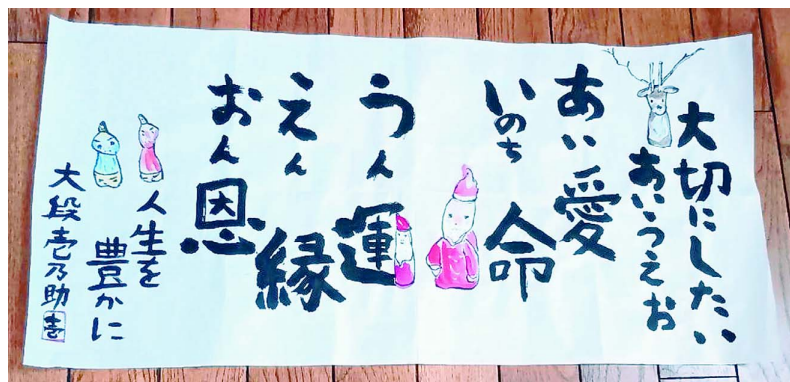 大切にしたい
あいうえお
あい愛
いのち命
うん運
えん縁
おん恩
人生を
豊かに
大段壱乃助
壱